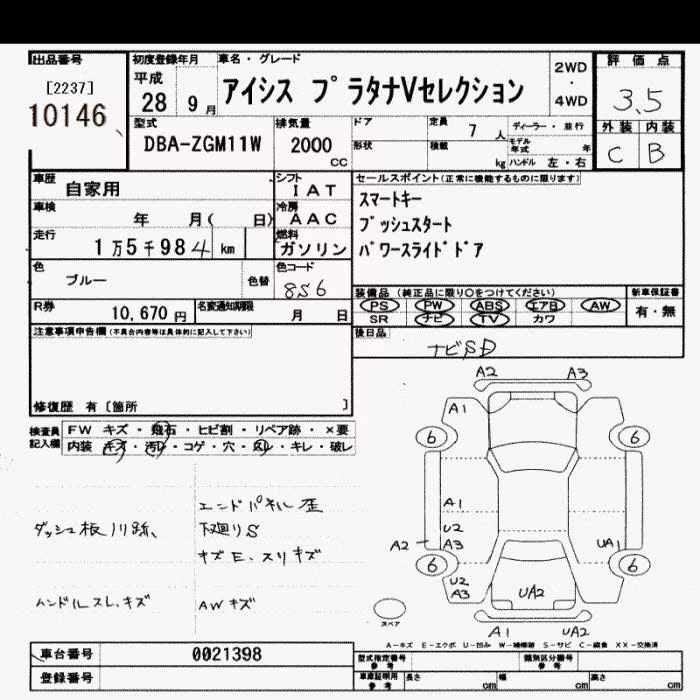 出品番号
[2237]
10146
初度登録年月
平成
28 9月
車名・グレード
アイシス プラタナVセレクション
2WD
・
4WD
評価点
3.5
外装 内装
C B
型式
DBA-ZGM11W
排気量
2000
cc
ドア
形状
定員
7人
積載
kg
ディーラー・並行
モデル年式 年
ハンドル 左・右
車歴
自家用
シフト
IAT
セールスポイント(正常に機能するものに限ります)
スマートキー
プッシュスタート
パワースライドドア
車検
年 月( 日)
冷房
AAC
走行
1万5千984km
燃料
ガソリン
色
ブルー
色替
色コード
8S6
装備品(純正品に限り○をつけてください)
新車保証書
PS PW ABS エアB AW
SR ナビ TV カワ
有・無
R券
10,670円
名変通知期限
月 日
後日品
ナビSD
注意事項申告欄(不具合内容等は具体的に記入して下さい)
修復歴 有〔箇所 〕
検査員記入欄
FW キズ・飛石・ヒビ割・リペア跡・×要
内装 キズ・汚レ・コゲ・穴・スレ・キレ・破レ
エンドパネル歪
ダッシュ板 跡、
下廻りS
キズE、スリキズ
ハンドルスレ、キズ
AWキズ
A2 A3
A1
6 6
A1
U2
A2 A3
UA1
6 6
U2
A3
UA2
スペア
A1 UA2
A-キズ E-エクボ U-凹み W-補修跡 S-サビ C-腐食 XX-交換済
車台番号
0021398
登録番号
型式指定番号
参考
類別区分番号
参考
車庫証明用
参考
長さ cm
幅 cm
高さ cm